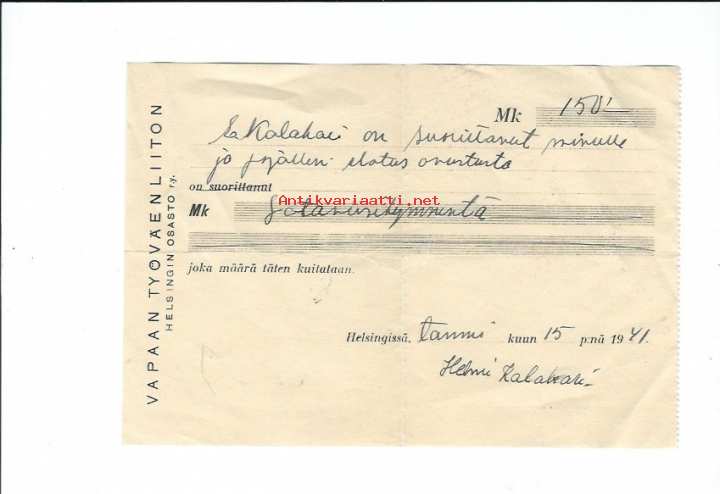 VAPAAN TYÖVÄENLIITON
HELSINGIN OSASTO r.y.
Mk 150'-
on suorittanut minulle
ja elatus avustusta
on suorittanut
Antikvariaatti.net
Mk
joka määrä täten kuitataan.
Helsingissä, tammi kuun 15 p:nä 1941.
Helmi Kalahari